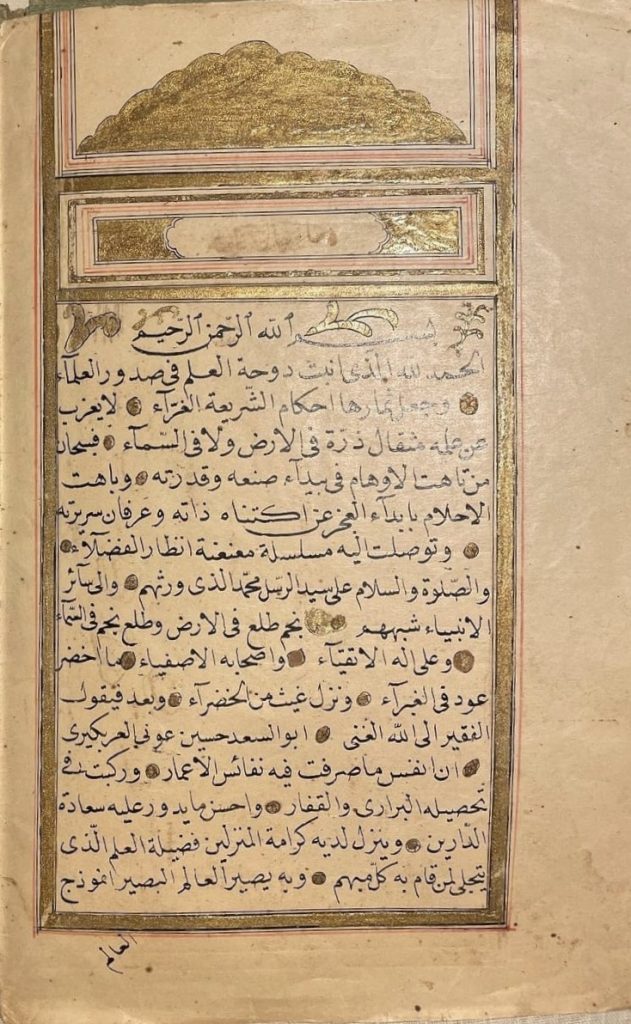 بسم الله الرحمن الرحيم
الحمد لله الذى انبت دوحة العلم فى صدور العلمآء
وجعل ثمارها احكام الشريعة الغرّآء لا يعزب
عن علمه مثقال ذرّة فى الارض ولا فى السّمآء فسبحان
من تاهت الاوهام فى بيدآء صنعه وقدرته وباهت
الاحلام بابدآء العجز عن اكتناه ذاته وعرفان سريرته
وتوصلت اليه مسلسلة معنعنة انظار الفضلآء
والصّلوة والسلام على سيد الرسل محمّد الذى ورثهم والى سآئر
الانبياء شبههم بنجم طلع فى الارض وطلع نجم فى السّمآء
وعلى اله الاتقيّآء واصحابه الاصفياء ما اخضر
عود فى الغبرآء ونزل غيث من الخضرآء وبعد فيقول
الفقير الى الله الغنى ابو السعد حسين عونى العربكيرى
ان انفس ما صرفت فيه نفائس الاعمار وركبت فى
تحصيله البرارى والقفار واحسن ما يدور عليه سعادة
الدّارين وينزل لديه كرامة المنزلين فضيلة العلم الّذى
يتجلى لمن قام به كلّ مبهم وبه يصير العالم البصير انموذج
العالم